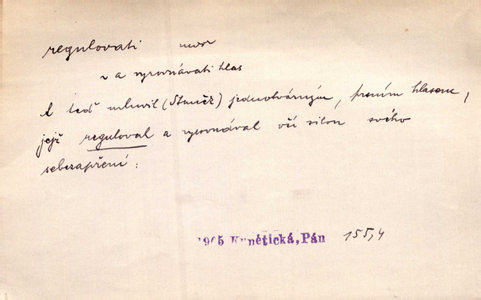 regulovati
~ a vyrovnávati hlas
A teď mluvil (Staněk) jednotvárným, pevným hlasem,
jejž reguloval a vyrovnával vší silou svého
sebezapření:
1905 Kunětická, Pán 155,4